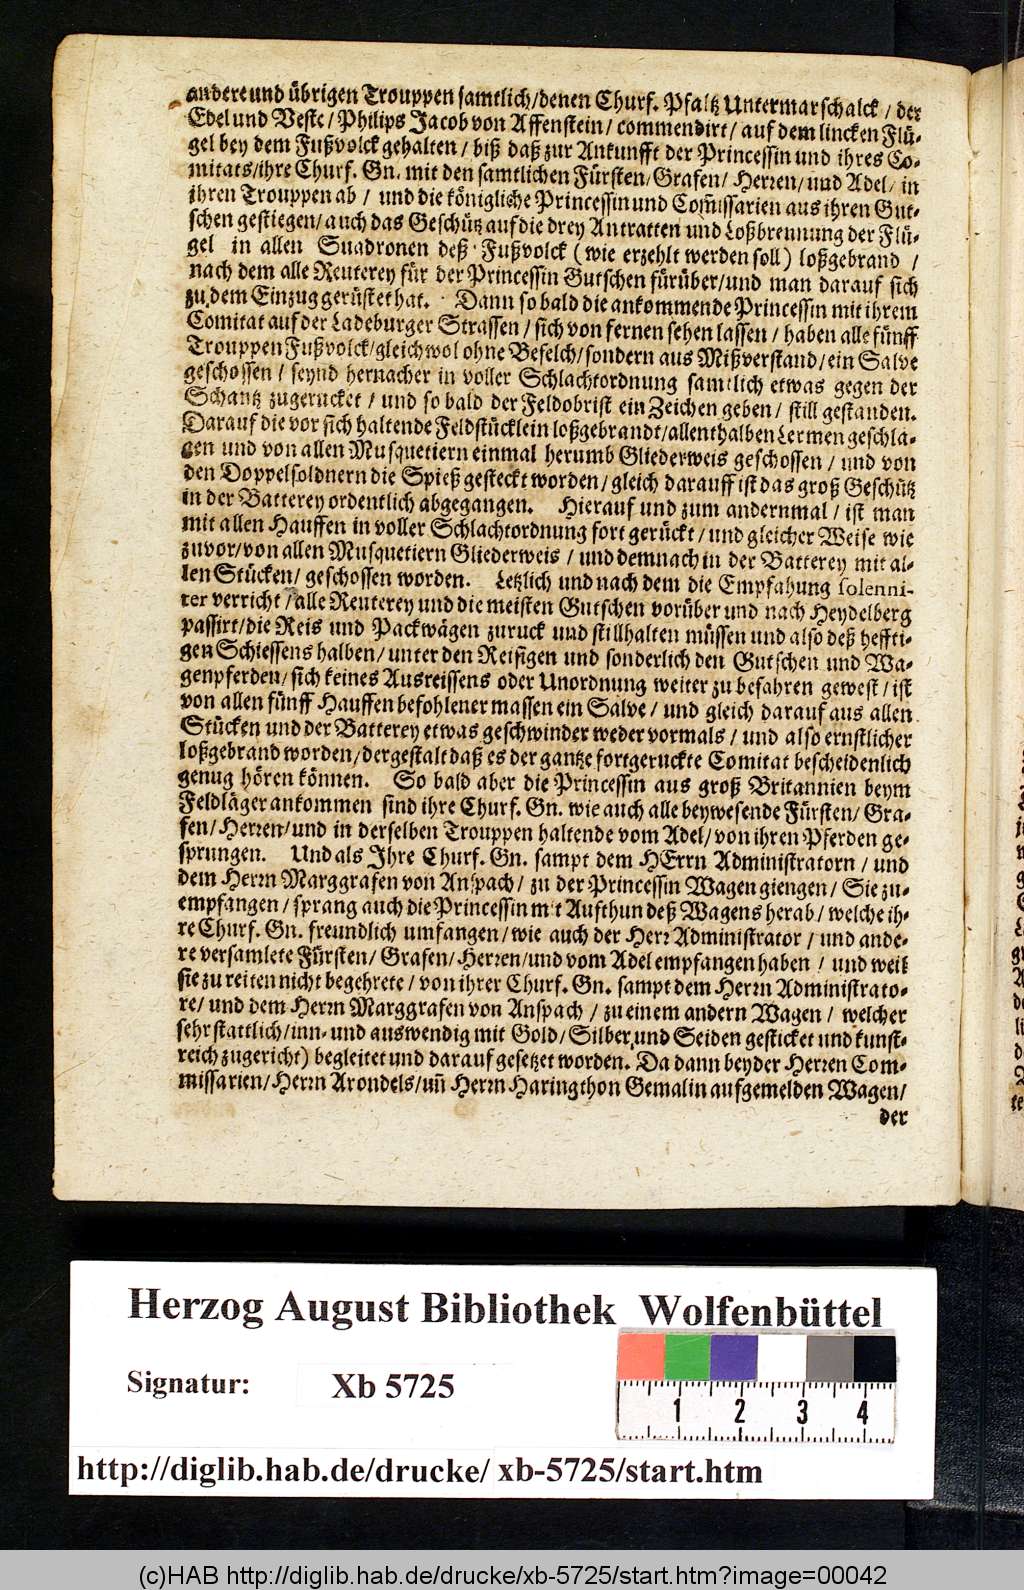 andere und übrigen Trouppen samtlich/denen Churf. Pfaltz Untermarschalck / der
Edel und Veste / Philips Jacob von Affenstein / commendirt / auf dem lincken Flü-
gel bey dem Fußvolck gehalten / biß daß zur Ankunfft der Princessin und ihres Co-
mitats/ihre Churf. Gn. mit den samtlichen Fürsten/Grafen/ Herren/ und Adel/ in
ihren Trouppen ab / und die königliche Princessin und Com̃issarien aus ihren Gut-
schen gestiegen/ auch das Geschütz auf die drey Antratten und Loßbrennung der Flü-
gel in allen Suadronen deß Fußvolck (wie erzehlt werden soll) loßgebrand /
nach dem alle Reuterey für der Princessin Gutschen fürüber/und man darauf sich
zu dem Einzug gerüstet hat. Dann so bald die ankommende Princessin mit ihrem
Comitat auf der Ladeburger Strassen / sich von fernen sehen lassen / haben alle fünff
Trouppen Fußvolck/gleichwol ohne Befelch/sondern aus Mißverstand/ein Salve
geschossen / seynd hernacher in voller Schlachtordnung samtlich etwas gegen der
Schantz zugerucket / und so bald der Feldobrist ein Zeichen geben/ still gestanden.
Darauf die vor sich haltende Feldstücklein loßgebrandt/allenthalben Lermen geschla-
gen und von allen Musquetiern einmal herumb Gliederweis geschossen / und von
den Doppelsoldnern die Spieß gesteckt worden/gleich darauff ist das groß Geschütz
in der Batterey ordentlich abgegangen. Hierauf und zum andernmal / ist man
mit allen Hauffen in voller Schlachtordnung fort gerückt/ und gleicher Weise wie
zuvor/von allen Musquetiern Gliederweis / und demnach in der Batterey mit al-
len Stücken/ geschossen worden. Letzlich und nach dem die Empfahung solenni-
ter verricht / alle Reuterey und die meisten Gutschen vorüber und nach Heydelberg
passirt/die Reis und Packwägen zuruck und stillhalten müssen und also deß hefftig-
gen Schiessens halben/unter den Reisigen und sonderlich den Gutschen und Wa-
genpferden/ sich keines Ausreissens oder Unordnung weiter zu befahren gewest/ ist
von allen fünff Hauffen befohlener massen ein Salve / und gleich darauf aus allen
Stücken und der Batterey etwas geschwinder weder vormals / und also ernstlicher
loßgebrand worden/dergestalt daß es der gantze fortgeruckte Comitat bescheidenlich
genug hören können. So bald aber die Princessin aus groß Britannien beym
Feldläger ankommen sind ihre Churf. Gn. wie auch alle beywesende Fürsten/ Gra-
fen/ Herren/und in derselben Trouppen haltende vom Adel/von ihren Pferden ge-
sprungen. Und als Jhre Churf. Gn. sampt dem HErrn Administratorn / und
dem Herrn Marggrafen von Anspach / zu der Princessin Wagen giengen/ Sie zu-
empfangen / sprang auch die Princessin mit Aufthun deß Wagens herab/ welche ih-
re Churf. Gn. freundlich umfangen/ wie auch der Herr Administrator / und ande-
re versamlete Fürsten/ Grafen/ Herren/und vom Adel empfangen haben / und weil
sie zu reiten nicht begehrete / von ihrer Churf. Gn. sampt dem Herrn Administrato-
re/ und dem Herrn Marggrafen von Anspach / zu einem andern Wagen / welcher
sehr stattlich/inn- und auswendig mit Gold/ Silber und Seiden gesticket und kunst-
reich zugericht) begleitet und darauf gesetzet worden. Da dann beyder Herren Com-
missarien/ Herrn Arondels/ uñ Herrn Haringthon Gemalin aufgemelden Wagen/
der
Herzog August Bibliothek Wolfenbüttel
Signatur: Xb 5725
1 2 3 4
http://diglib.hab.de/drucke/ xb-5725/start.htm
(c)HAB http://diglib.hab.de/drucke/xb-5725/start.htm?image=00042